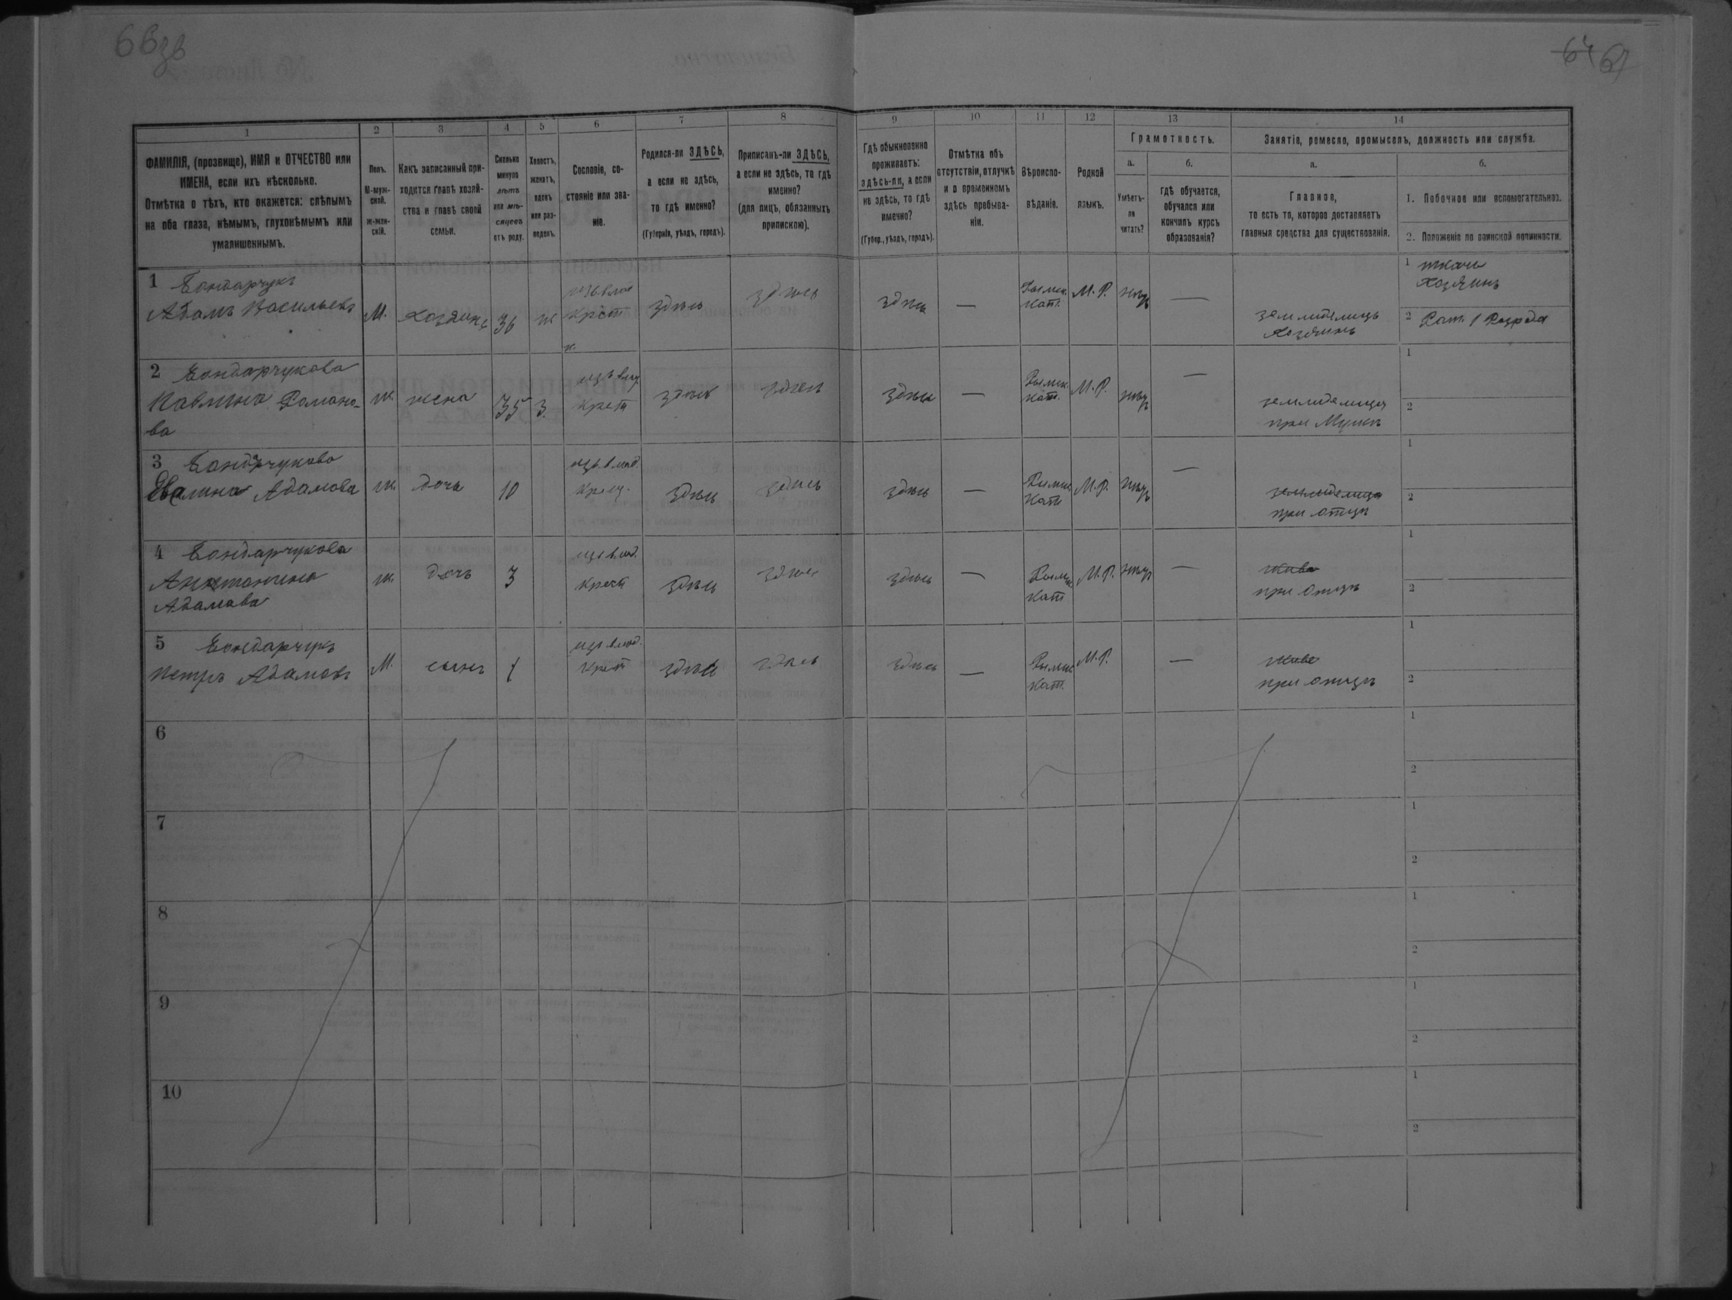 6 Взв
64 67
1 2 3 4 5 6 7 8 9 10 11 12 13 14
ФАМИЛІЯ, (прозвище), ИМЯ и ОТЧЕСТВО или
ИМЕНА, если ихъ нѣсколько.
Отмѣтка о тѣхъ, кто окажется: слѣпымъ
на оба глаза, нѣмымъ, глухонѣмымъ или
умалишеннымъ.
Полъ.
М-муж-
ской.
Ж-жен-
скій.
Какъ записанный при-
ходится главѣ хозяй-
ства и главѣ своей
семьи.
Сколько
минуло
лѣтъ
или мѣ-
сяцевъ
отъ роду.
Холостъ,
женатъ,
вдовъ
или раз-
веденъ.
Сословіе, со-
стояніе или зва-
ніе.
Родился-ли ЗДѢСЬ,
а если не здѣсь,
то гдѣ именно?
(Губернія, уѣздъ, городъ).
Приписанъ-ли ЗДѢСЬ,
а если не здѣсь, то гдѣ
именно?
(для лицъ, обязанныхъ
припискою).
Гдѣ обыкновенно
проживаетъ:
здѣсь-ли, а если
не здѣсь, то гдѣ
именно?
(Губер., уѣздъ, городъ).
Отмѣтка объ
отсутствіи, отлучкѣ
и о временномъ
здѣсь пребыва-
ніи.
Вѣроиспо-
вѣданіе.
Родной
языкъ.
Грамотность.
а.
Умѣетъ-
ли
читать?
б.
гдѣ обучается,
обучался или
кончилъ курсъ
образованія?
Занятіе, ремесло, промыселъ, должность или служба.
а.
Главное,
то есть то, которое доставляетъ
главныя средства для существованія.
б.
1. Побочное или вспомогательное.
2. Положеніе по воинской повинности.
1 Бондарчукъ
Адамъ Васильевъ
М. Хозяинъ 36 ж
Крест
здѣсь здѣсь здѣсь —
Римск.
Кат.
М. Р. нѣтъ —
земледелецъ
Хозяинъ
1 ткачъ
Хозяинъ
2 Рат. 1 Разряда
2 Бондарчукова
Павлина Романо-
ва
ж. жена 35 З.
Крест
здѣсь здѣсь здѣсь —
Римск.
Кат.
М. Р. нѣтъ —
земледелица
при Мужѣ
1
2
3 Бондарчукова
Евелина Адамова
ж. дочь 10
изъ влад.
Крест.
здѣсь здѣсь здѣсь —
Римск
Кат
М. Р. нѣтъ —
земледелица
при отцѣ
1
2
4 Бондарчукова
Антонина
Адамова
ж. дочь 3
изъ влад.
Крест
здѣсь здѣсь здѣсь —
Римск
Кат
М. Р. нѣтъ —
при отцѣ
1
2
5 Бондарчукъ
Петръ Адамовъ
М. сынъ 1
изъ влад.
Крест
здѣсь здѣсь здѣсь —
Римск
Кат.
М. Р. —
при отцѣ
1
2
6
1
2
7
1
2
8
1
2
9
1
2
10
1
2